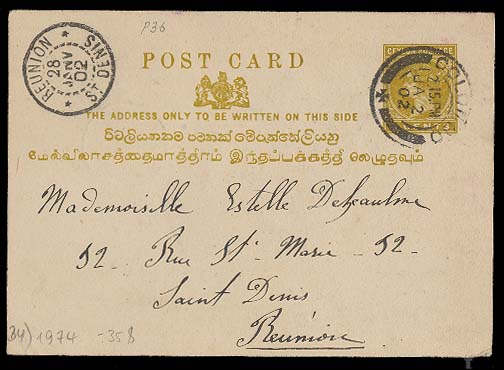 P36
POST CARD
CEYLON POSTAGE
REUNION
28
JANV
02
ST DENIS
COLOMBO
2 15 PM
JA 2
02
THE ADDRESS ONLY TO BE WRITTEN ON THIS SIDE
மேல்விலாசத்தைமாத்திரம் இந்தப்பக்கத்தி லெழுதவும்
Mademoiselle Estelle
52 Rue St Marie 52
Saint Denis
Reunion
1974 -358